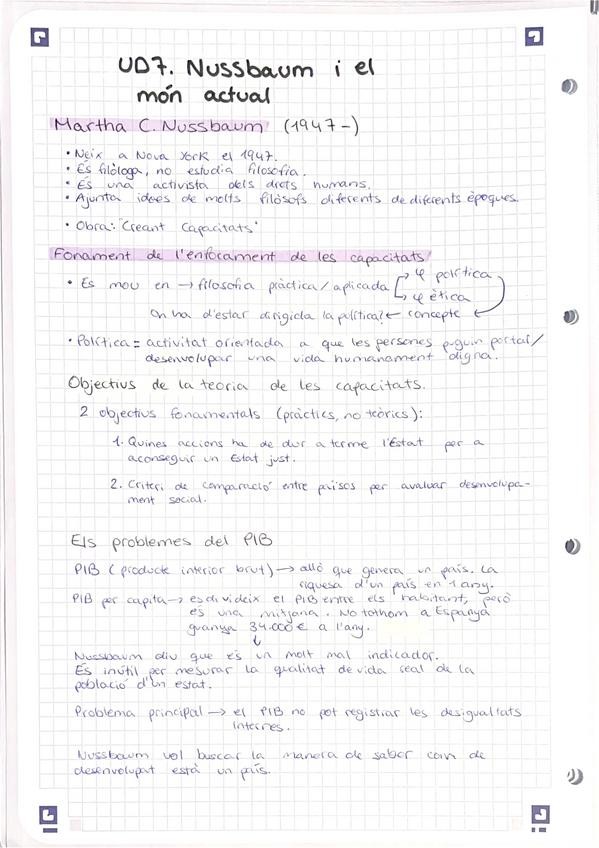 UD7. Nussbaum i el
món actual
Martha C. Nussbaum (1947-)
• Neix a Nova York el 1947.
• És filòloga, no estudia filosofia.
• És una activista dels drets humans.
• Ajunta idees de molts filòsofs diferents de diferents èpoques.
• Obra: "Creant Capacitats"
Fonament de l'enfocament de les capacitats
φ política
• Es mou en → filosofia pràctica/aplicada
φ ètica
On ha d'estar dirigida la política? ← concepte
• Política = activitat orientada a que les persones puguin portar/
desenvolupar una vida humanament digna.
Objectius de la teoria de les capacitats.
2 objectius fonamentals (pràctics, no teòrics):
1. Quines accions ha de dur a terme l'Estat per a
aconseguir un Estat just.
2. Criteri de comparació entre països per avaluar desenvolupa-
ment social.
Els problemes del PIB
PIB (producte interior brut) → allò que genera un país. La
riquesa d'un país en 1 any.
PIB per capita → es divideix el PIB entre els habitant, però
és una mitjana. No tothom a Espanya
guanya 34.000€ a l'any.
↓
Nussbaum diu que és un molt mal indicador.
És inútil per mesurar la qualitat de vida real de la
població d'un estat.
Problema principal → el PIB no pot registrar les desigualtats
internes.
Nussbaum vol buscar la manera de saber com de
desenvolupat està un país.